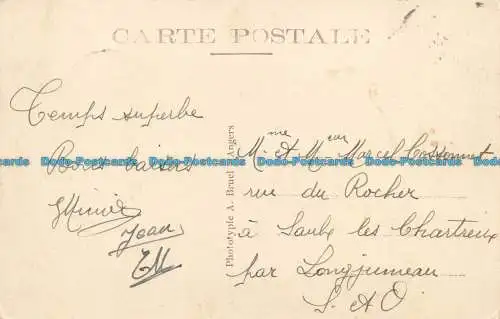 CARTE POSTALE
Temps superbe
Bons baisers
Jean
Phototypie A. Bruel Angers
Mme et Mr Marcel
rue du Rocher
à Saulx les Chartreux
par Longjumeau
S. & O.
Dado-Postcards Dado-Postcards Dado-Postcards Dado-Postcards Dado-Postcards Dado-Postcards